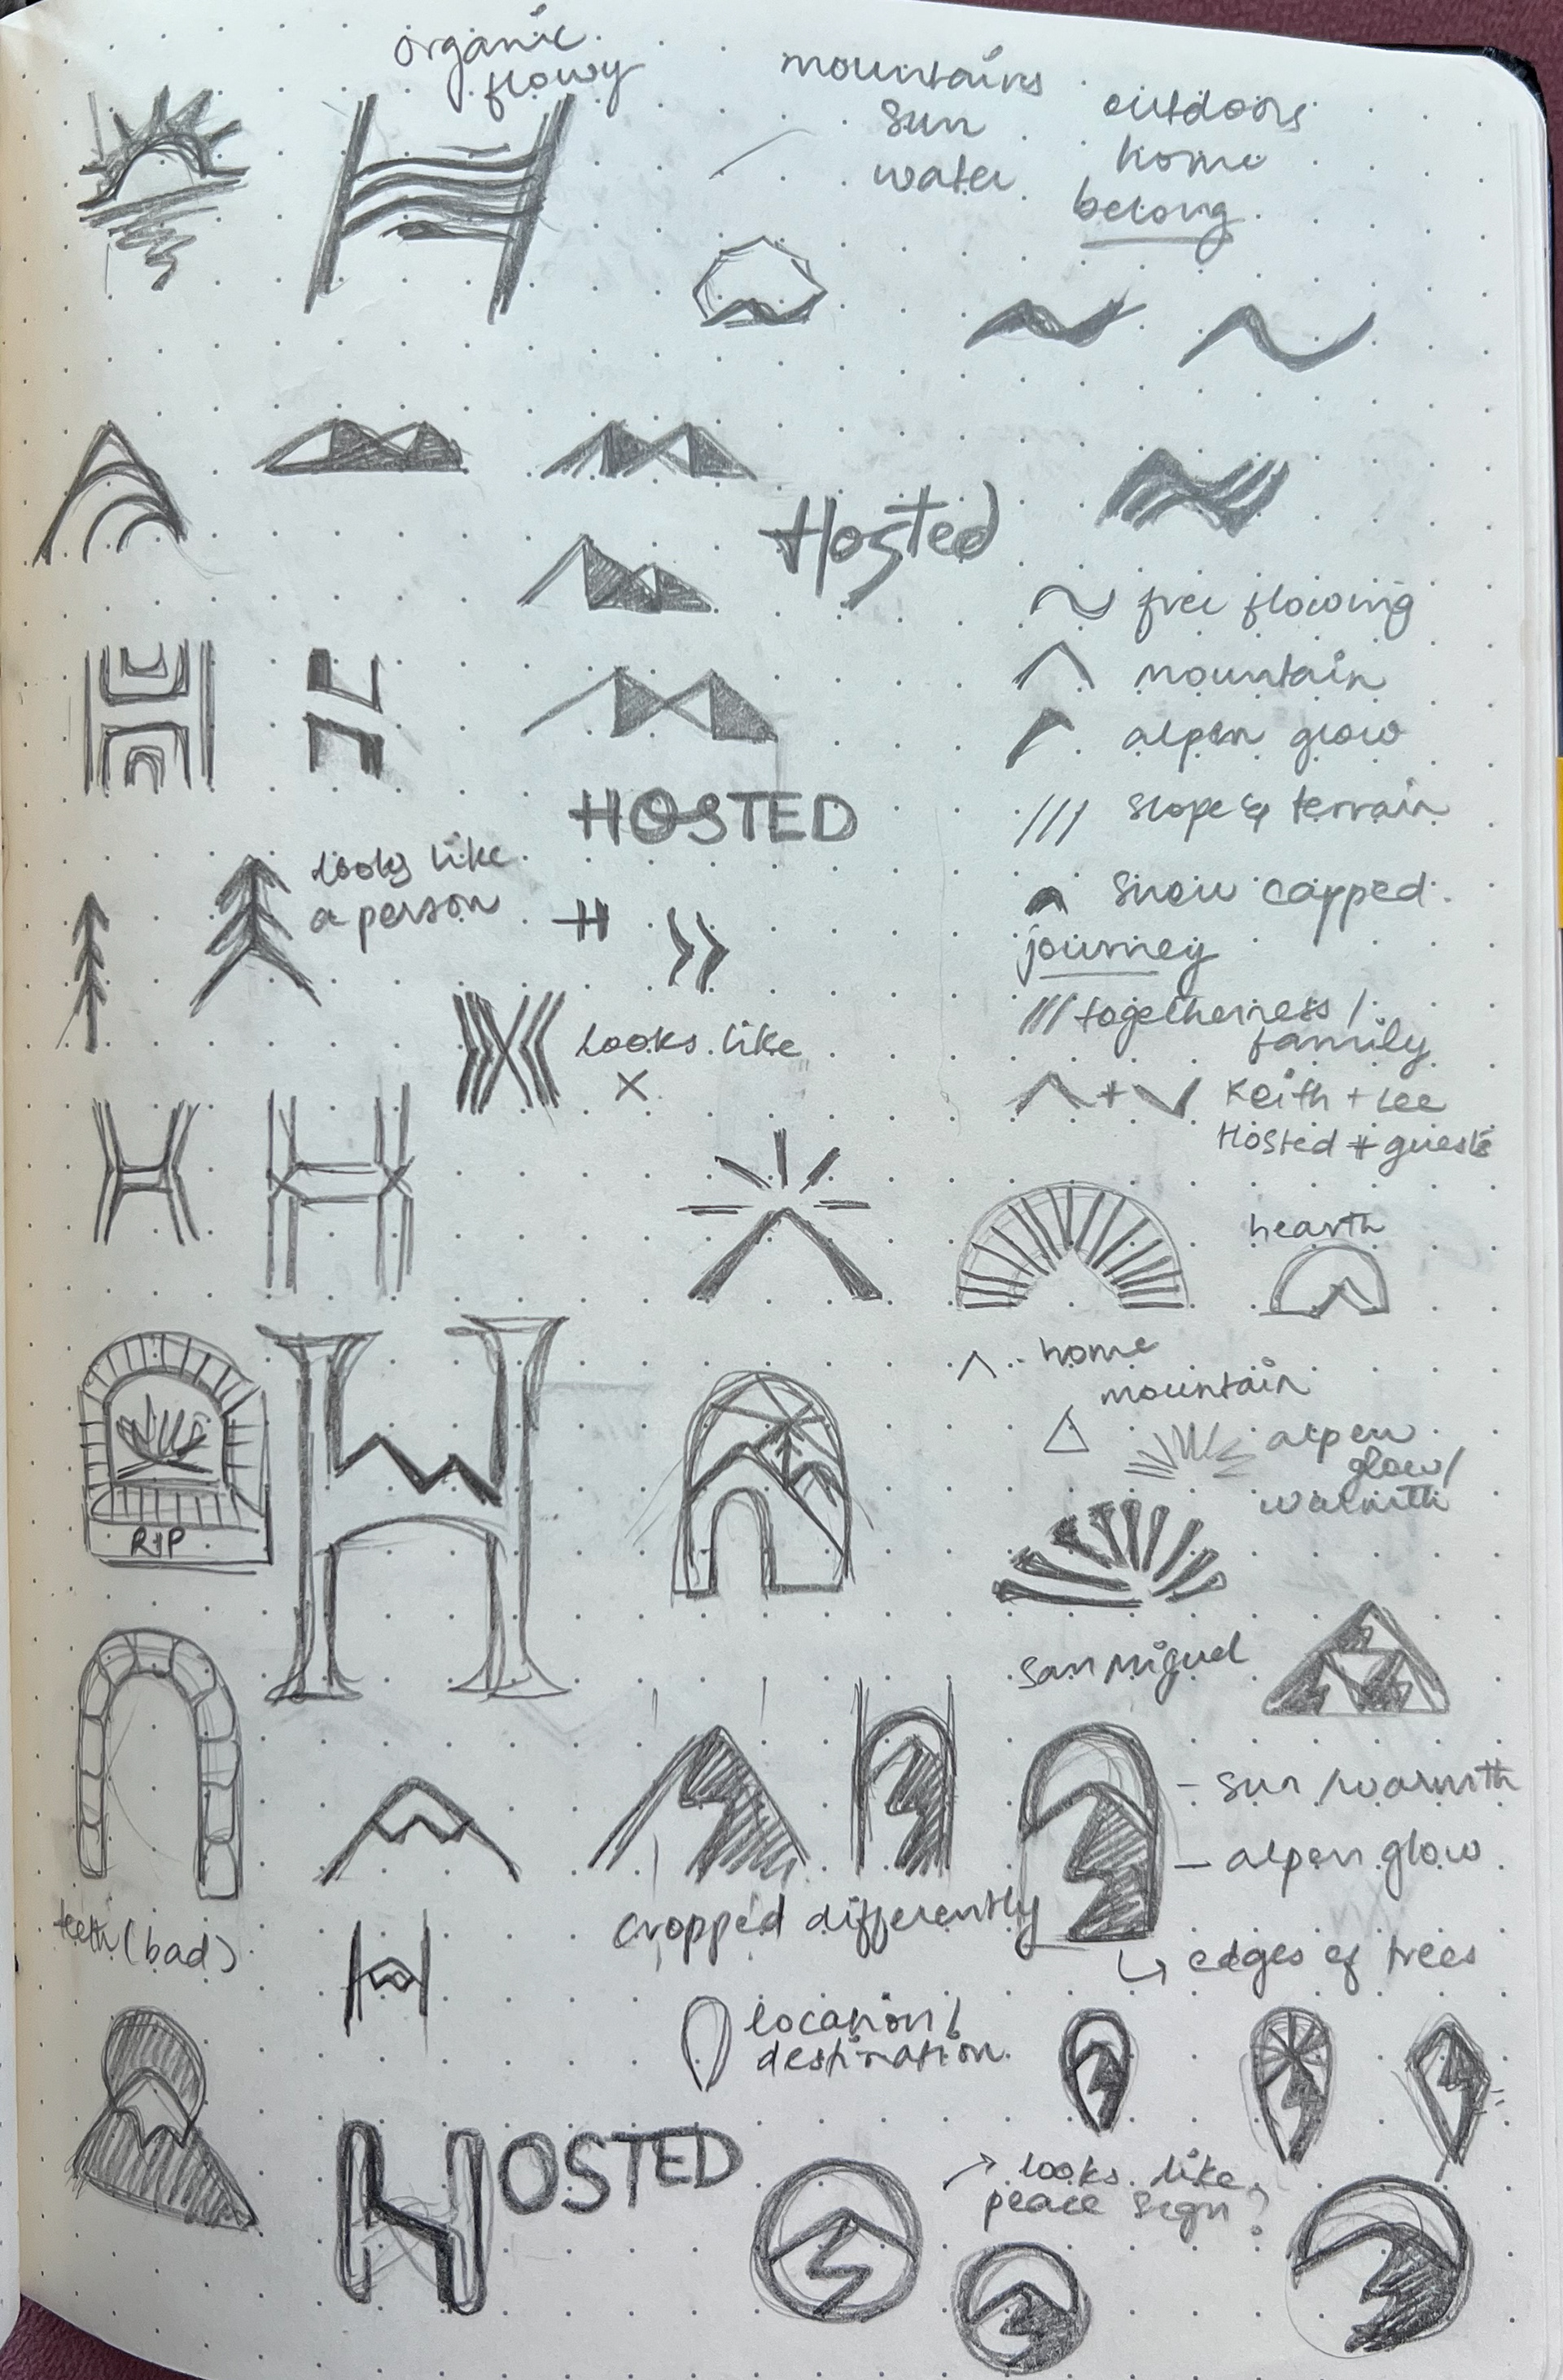 organic
flowy
mountains
sun
water
outdoors
home
belong
Hosted
free flowing
mountain
alpen glow
HOSTED
slope & terrain
looks like
a person
snow capped
journey
togetherness /
family
looks like
X
+
Keith + Lee
Hosted + guests
hearth
home
mountain
alpen
glow/
warmth
RIP
san miguel
- sun / warmth
- alpen glow
cropped differently
teeth (bad)
edges of trees
location /
destination
HOSTED
looks like
peace sign?